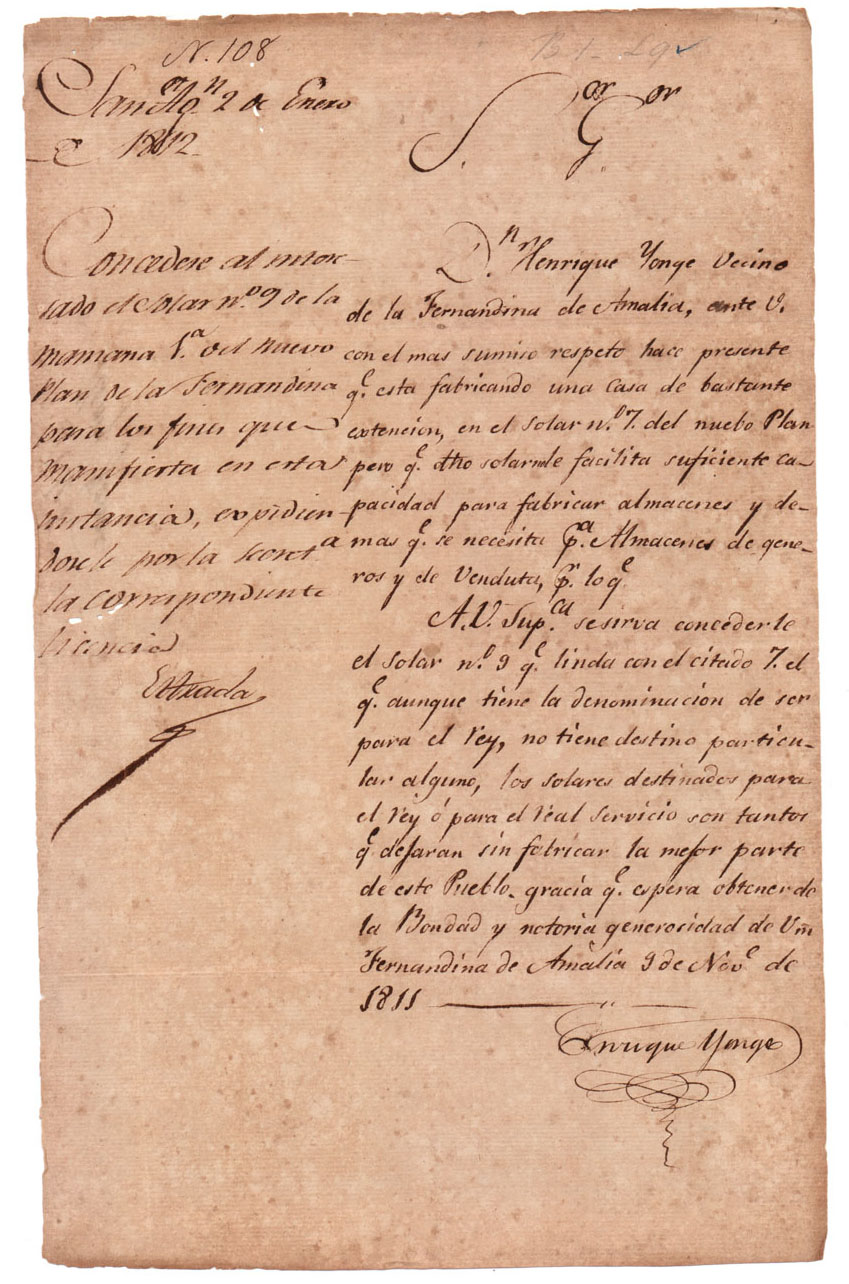 N. 108
San Agn. 2 de Enero
de 1812
Concedese al intere-
sado el solar nº. 9 de la
manzana 1.ª del nuevo
Plan de la Fernandina
para los fines que
manifiesta en esta
instancia, expidien-
dosele por la Secret.ª
la correspondiente
licencia
Estrada
S.or G.or
D.n Henrique Yonge Vecino
de la Fernandina de Amalia, ante V.
con el mas sumiso respeto hace presente
q.e esta fabricando una casa de bastante
extencion, en el solar n.o 7. del nuebo Plan
pero q.e dho solar no le facilita suficiente ca-
pacidad para fabricar almacenes y de-
mas q.e se necesita p.a Almacenes de gene-
ros y de Venduta, p.r lo q.e
A.V. Sup.ca se sirva concederle
el solar n.o 9 q.e linda con el citado 7. el
q.e aunque tiene la denominacion de ser
para el Rey, no tiene destino particu-
lar alguno, los solares destinados para
el rey ó para el real servicio son tantos
q.e dejaran sin fabricar la mejor parte
de este Pueblo_ gracia q.e espera obtener de
la Bondad y notoria generosidad de Vm
Fernandina de Amalia 9 de Nov.e de
1811
Enrrique Yonge